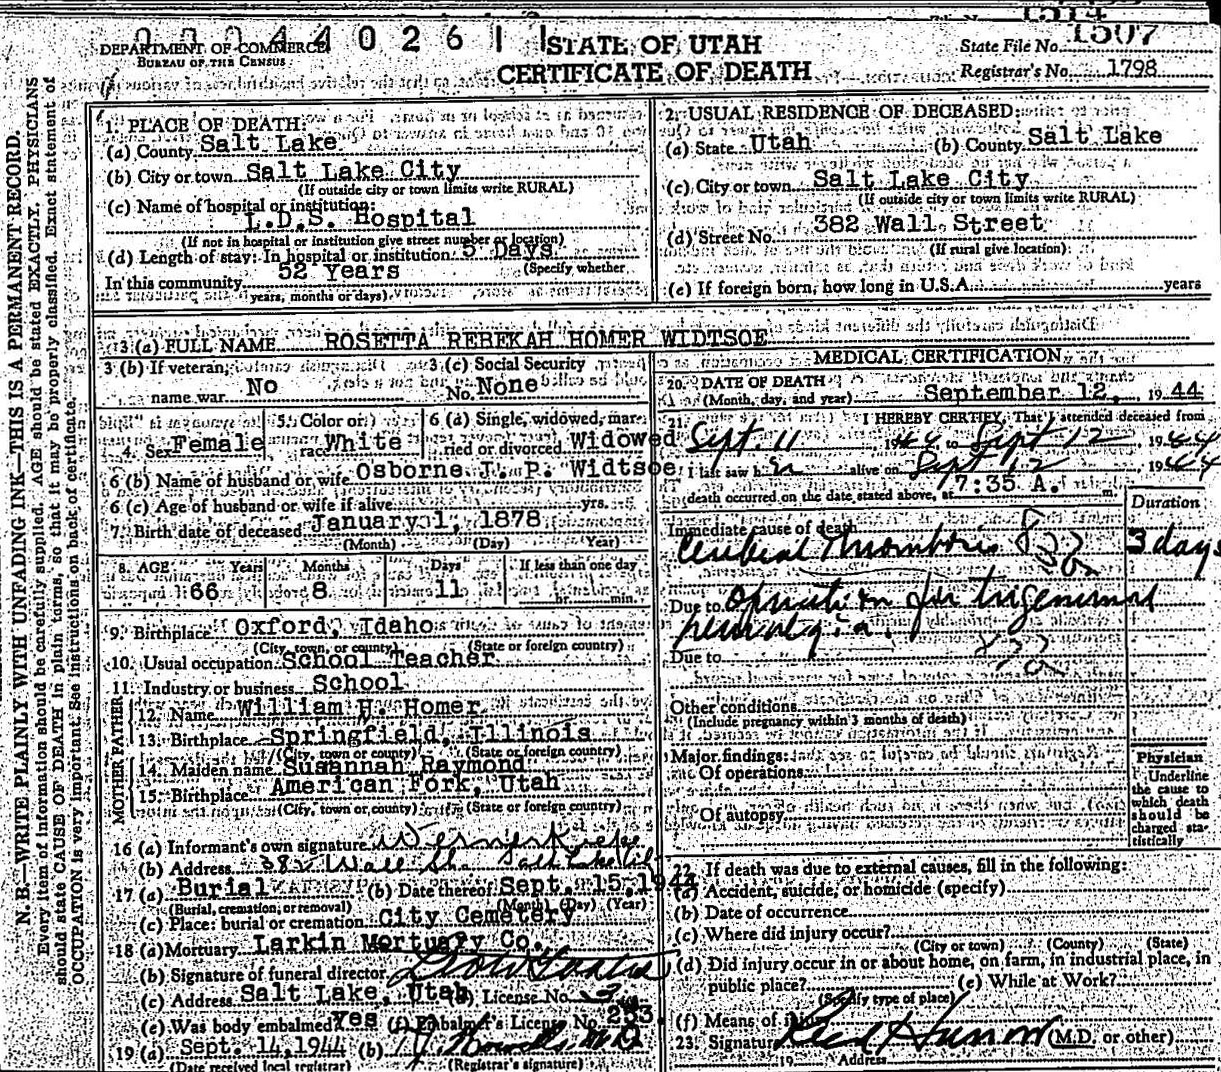 DEPARTMENT OF COMMERCE
BUREAU OF THE CENSUS
STATE OF UTAH
CERTIFICATE OF DEATH
State File No. 1507
Registrar's No. 1798
N. B.—WRITE PLAINLY WITH UNFADING INK—THIS IS A PERMANENT RECORD.
Every item of information should be carefully supplied. AGE should be stated EXACTLY. PHYSICIANS
should state CAUSE OF DEATH in plain terms, so that it may be properly classified. Exact statement of
OCCUPATION is very important. See instructions on back of certificate.
1. PLACE OF DEATH:
(a) County Salt Lake
(b) City or town Salt Lake City
(If outside city or town limits write RURAL)
(c) Name of hospital or institution:
L.D.S. Hospital
(If not in hospital or institution give street number or location)
(d) Length of stay: In hospital or institution 5 Days
(Specify whether
In this community 52 Years
years, months or days)
2. USUAL RESIDENCE OF DECEASED:
(a) State Utah (b) County Salt Lake
(c) City or town Salt Lake City
(If outside city or town limits write RURAL)
(d) Street No. 382 Wall Street
(If rural give location)
(e) If foreign born, how long in U.S.A. years
3 (a) FULL NAME ROSETTA REBEKAH HOMER WIDTSOE
3 (b) If veteran,
name war No
3 (c) Social Security
No. None
4. Sex Female
5. Color or
race White
6 (a) Single, widowed, mar-
ried or divorced Widowed
6 (b) Name of husband or wife Osborne J. P. Widtsoe
6 (c) Age of husband or wife if alive yrs.
7. Birth date of deceased January 1, 1878
(Month) (Day) (Year)
8. AGE Years Months Days If less than one day
66 8 11 hr. min.
9. Birthplace Oxford, Idaho
(City, town, or county) (State or foreign country)
10. Usual occupation School Teacher
11. Industry or business School
FATHER
12. Name William H. Homer
13. Birthplace Springfield, Illinois
(City, town or county) (State or foreign country)
MOTHER
14. Maiden name Susannah Raymond
15. Birthplace American Fork, Utah
(City, town or county) (State or foreign country)
16 (a) Informant's own signature Werner
(b) Address 382 Wall St. Salt Lake
17 (a) Burial (b) Date thereof Sept. 15, 1944
(Burial, cremation, or removal) (Month) (Day) (Year)
(c) Place: burial or cremation City Cemetery
18 (a) Mortuary Larkin Mortuary Co.
(b) Signature of funeral director
(c) Address Salt Lake, Utah License No.
(e) Was body embalmed? Yes (f) Embalmer's License No. 253
19 (a) Sept. 14, 1944 (b)
(Date received local registrar) (Registrar's signature)
MEDICAL CERTIFICATION
20. DATE OF DEATH
(Month, day, and year) September 12, 1944
21. I HEREBY CERTIFY, That I attended deceased from
Sept. 11 1944 to Sept 12 1944
I last saw her alive on Sept 12 1944
death occurred on the date stated above, at 7:35 A. m.
Duration
Immediate cause of death
Cerebral Thrombosis 3 days
Due to operation for trigeminal
neuralgia.
Due to
Other conditions
(Include pregnancy within 3 months of death)
Major findings:
Of operations
Of autopsy
Physician
Underline
the cause to
which death
should be
charged sta-
tistically
22. If death was due to external causes, fill in the following:
(a) Accident, suicide, or homicide (specify)
(b) Date of occurrence
(c) Where did injury occur?
(City or town) (County) (State)
(d) Did injury occur in or about home, on farm, in industrial place, in
public place? (e) While at Work?
(Specify type of place)
(f) Means of injury
23. Signature (M.D. or other)
19 Address